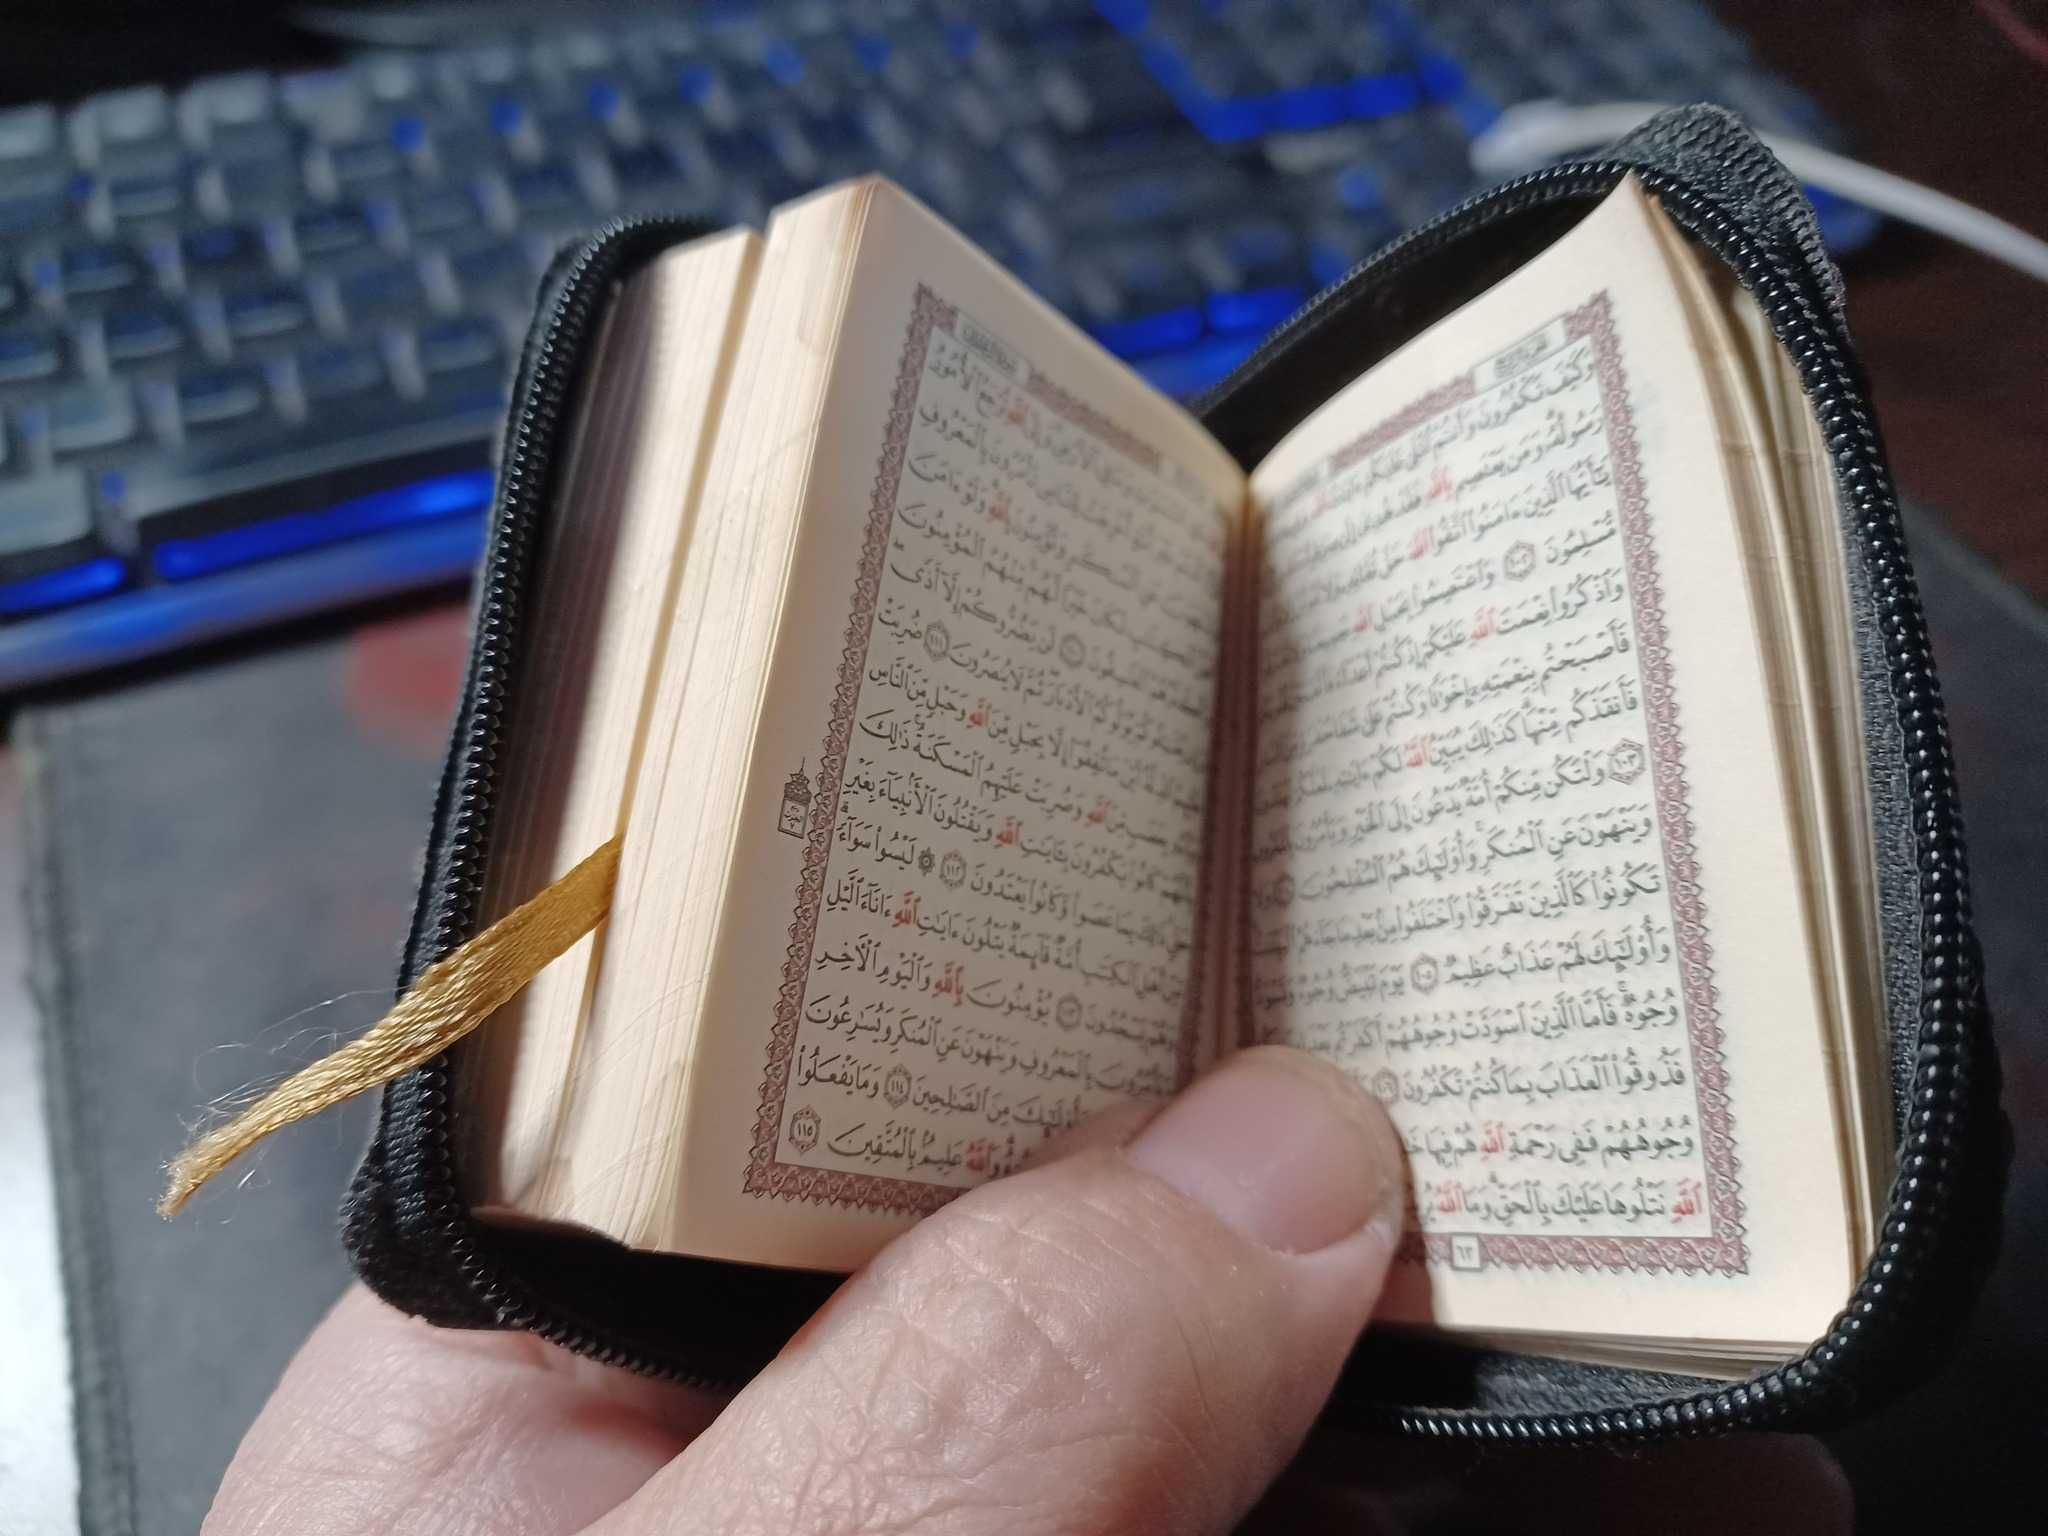 وَكَيْفَ تَكْفُرُونَ وَأَنتُمْ تُتْلَىٰ عَلَيْكُمْ ءَايَٰتُ ٱللَّهِ
رَسُولُهُۥ وَمَن يَعْتَصِم بِٱللَّهِ فَقَدْ هُدِيَ إِلَىٰ
يَٰٓأَيُّهَا ٱلَّذِينَ ءَامَنُوا۟ ٱتَّقُوا۟ ٱللَّهَ حَقَّ تُقَاتِهِۦ وَلَا
مُّسْلِمُونَ ١٠٢ وَٱعْتَصِمُوا۟ بِحَبْلِ ٱللَّهِ جَمِيعًا
وَٱذْكُرُوا۟ نِعْمَتَ ٱللَّهِ عَلَيْكُمْ إِذْ كُنتُمْ أَعْدَآءً
فَأَصْبَحْتُم بِنِعْمَتِهِۦٓ إِخْوَٰنًا وَكُنتُمْ عَلَىٰ شَفَا حُفْرَةٍ
فَأَنقَذَكُم مِّنْهَا كَذَٰلِكَ يُبَيِّنُ ٱللَّهُ لَكُمْ ءَايَٰتِهِۦ لَعَلَّكُمْ
١٠٣ وَلْتَكُن مِّنكُمْ أُمَّةٌ يَدْعُونَ إِلَى ٱلْخَيْرِ وَيَأْمُرُونَ
وَيَنْهَوْنَ عَنِ ٱلْمُنكَرِ وَأُو۟لَٰٓئِكَ هُمُ ٱلْمُفْلِحُونَ وَلَا
تَكُونُوا۟ كَٱلَّذِينَ تَفَرَّقُوا۟ وَٱخْتَلَفُوا۟ مِنۢ بَعْدِ مَا جَآءَهُمُ
وَأُو۟لَٰٓئِكَ لَهُمْ عَذَابٌ عَظِيمٌ ١٠٥ يَوْمَ تَبْيَضُّ وُجُوهٌ وَتَسْوَدُّ
وُجُوهٌ فَأَمَّا ٱلَّذِينَ ٱسْوَدَّتْ وُجُوهُهُمْ أَكَفَرْتُم بَعْدَ
فَذُوقُوا۟ ٱلْعَذَابَ بِمَا كُنتُمْ تَكْفُرُونَ ١٠٦
وُجُوهُهُمْ فَفِى رَحْمَةِ ٱللَّهِ هُمْ فِيهَا
ٱللَّهِ نَتْلُوهَا عَلَيْكَ بِٱلْحَقِّ وَمَا ٱللَّهُ
٦٣
تُرْجَعُ ٱلْأُمُورُ
تَأْمُرُونَ بِٱلْمَعْرُوفِ
وَتُؤْمِنُونَ بِٱللَّهِ وَلَوْ ءَامَنَ
لَكَانَ خَيْرًا لَّهُم مِّنْهُمُ ٱلْمُؤْمِنُونَ
ٱلْفَٰسِقُونَ لَن يَضُرُّوكُمْ إِلَّآ أَذًى
يُوَلُّوكُمُ ٱلْأَدْبَارَ ثُمَّ لَا يُنصَرُونَ ١١١ ضُرِبَتْ
ٱلذِّلَّةُ أَيْنَ مَا ثُقِفُوٓا۟ إِلَّا بِحَبْلٍ مِّنَ ٱللَّهِ وَحَبْلٍ مِّنَ ٱلنَّاسِ
بِغَضَبٍ مِّنَ ٱللَّهِ وَضُرِبَتْ عَلَيْهِمُ ٱلْمَسْكَنَةُ ذَٰلِكَ
بِأَنَّهُمْ كَانُوا۟ يَكْفُرُونَ بِـَٔايَٰتِ ٱللَّهِ وَيَقْتُلُونَ ٱلْأَنۢبِيَآءَ بِغَيْرِ
حَقٍّ ذَٰلِكَ بِمَا عَصَوا۟ وَّكَانُوا۟ يَعْتَدُونَ ١١٢ ۞ لَيْسُوا۟ سَوَآءً
مِّنْ أَهْلِ ٱلْكِتَٰبِ أُمَّةٌ قَآئِمَةٌ يَتْلُونَ ءَايَٰتِ ٱللَّهِ ءَانَآءَ ٱلَّيْلِ
وَهُمْ يَسْجُدُونَ ١١٣ يُؤْمِنُونَ بِٱللَّهِ وَٱلْيَوْمِ ٱلْـَٔاخِرِ
وَيَأْمُرُونَ بِٱلْمَعْرُوفِ وَيَنْهَوْنَ عَنِ ٱلْمُنكَرِ وَيُسَٰرِعُونَ
وَأُو۟لَٰٓئِكَ مِنَ ٱلصَّٰلِحِينَ ١١٤ وَمَا يَفْعَلُوا۟
وَٱللَّهُ عَلِيمٌۢ بِٱلْمُتَّقِينَ ١١٥